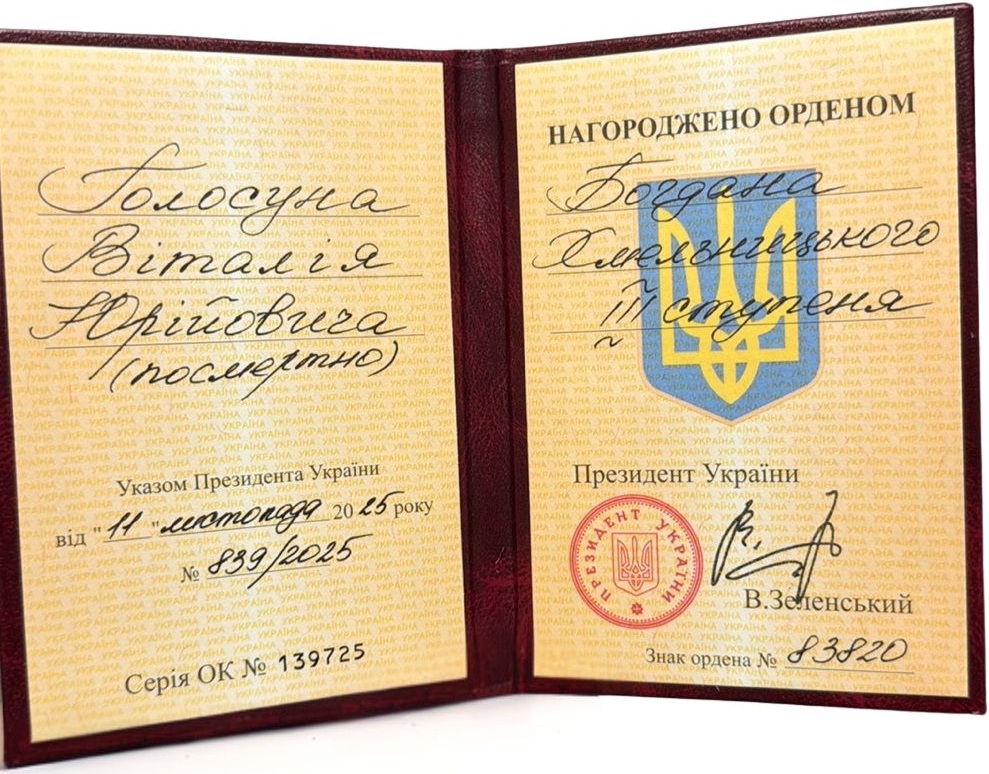 Голосуна
Віталія
Юрійовича
(посмертно)
Указом Президента України
від "11" листопада 2025 року
№ 839/2025
Серія ОК № 139725
НАГОРОДЖЕНО ОРДЕНОМ
Богдана
Хмельницького
III ступеня
Президент України
ПРЕЗИДЕНТ УКРАЇНИ
В.Зеленський
Знак ордена № 83820